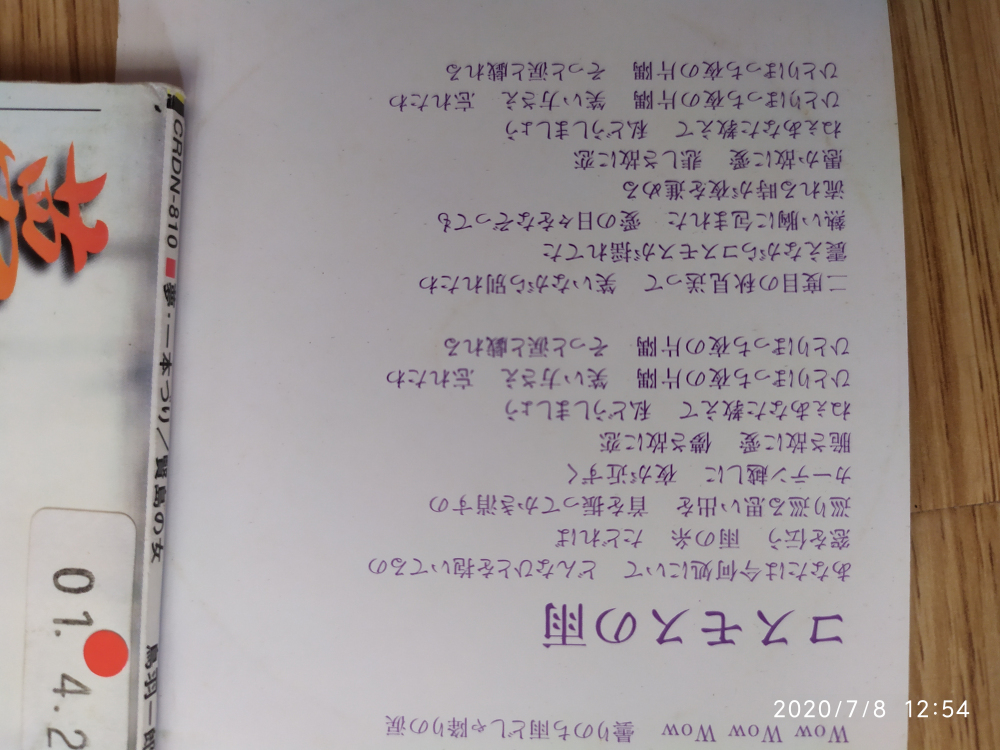 Wow Wow Wow 曇りのち雨どしゃ降りの涙
コスモスの雨
あなたは今何処にいて どんなひとを抱いてるの
窓を伝う 雨の糸 たどれば
巡り巡る思い出を 首を振ってかき消すの
カーテン越しに 夜が近ずく
脆さ故に愛 儚さ故に恋
ねぇあなた教えて 私どうしましょう
ひとりぼっち夜の片隅 笑い方さえ 忘れたわ
ひとりぼっち夜の片隅 そっと涙と戯れる
二度目の秋見送って 笑いながら別れたわ
震えながらコスモスが揺れてた
熱い胸に包まれた 愛の日々をなぞっても
流れる時が夜を進める
愚か故に愛 悲しさ故に恋
ねぇあなた教えて 私どうしましょう
ひとりぼっち夜の片隅 笑い方さえ 忘れたわ
ひとりぼっち夜の片隅 そっと涙と戯れる
CRDN-810 ■ 夢・一本づり／賢島の女 鳥羽一郎
01. 4. 2
2020/7/8 12:54